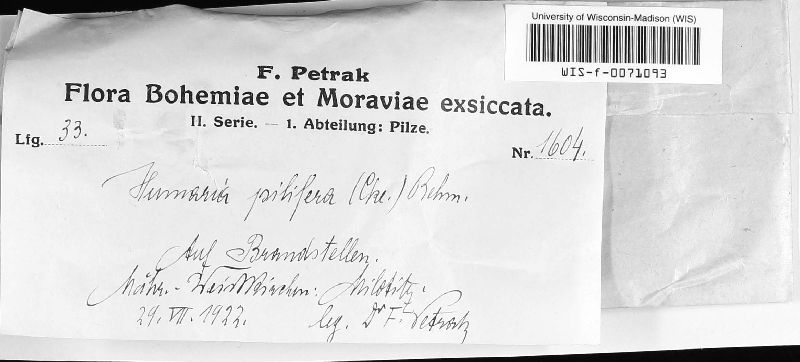 University of Wisconsin-Madison (WIS)
WIS-f-0071093
F. Petrak
Flora Bohemiae et Moraviae exsiccata.
II. Serie. — 1. Abteilung: Pilze.
Lfg. 33.
Nr. 1604.
Humaria pilifera (Cke.) Rehm.
Auf Brandstellen.
Mähr.-Weisskirchen: Milotitz.
29. VII. 1922. leg. Dr F. Petrak